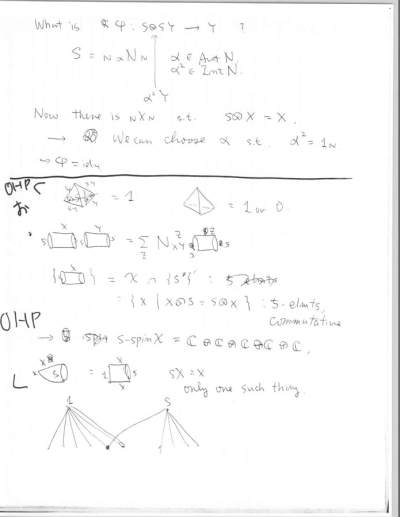 What is φ : S⊗SY → Y ?
S = N αNN α ∈ Aut N,
α² ∈ Int N.
α²Y
Now there is NXN s.t. S⊗X = X.
→ We can choose α s.t. α² = 1N
→ φ = idY
OHP
= 1 = 1 or 0.
X Y
S S = Σ N XY Z S
Z
{ } = X ∩ {S}' :
= {X | X⊗S = S⊗X} : 5-elmts,
commutative
OHP
→ S-spin X = C ⊕ C ⊕ C ⊕ C ⊕ C,
X S = 1 X S SX = X
X only one such thing.
1 S